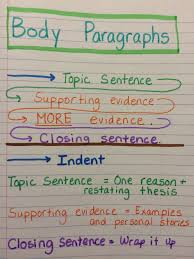 Body Paragraphs
Topic Sentence
Supporting evidence
MORE evidence.
Closing sentence.
Indent
Topic Sentence = One reason +
restating thesis
Supporting evidence = Examples
and personal stories
Closing Sentence = Wrap it up